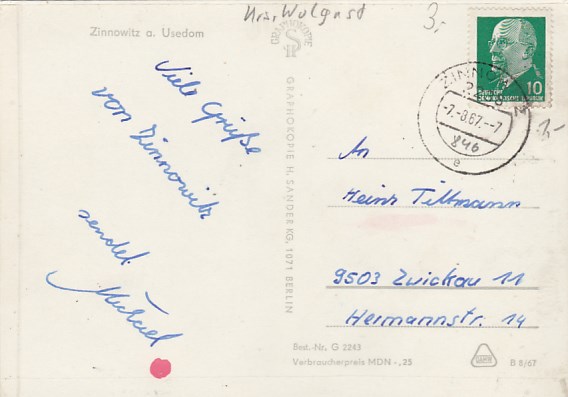 Krs. Wolgast
3,-
Zinnowitz a. Usedom
Viele Grüße
von Zinnowitz
sendet
Michael
GRAPHOKOPIE H. SANDER KG, 1071 BERLIN
10
ZINNOW
-7.-8.67.--7
846
e
3,-
An
Heinz Tittmann
9503 Zwickau 11
Hermannstr. 14
Best.-Nr. G 2243
Verbraucherpreis MDN -,25
B 8/67